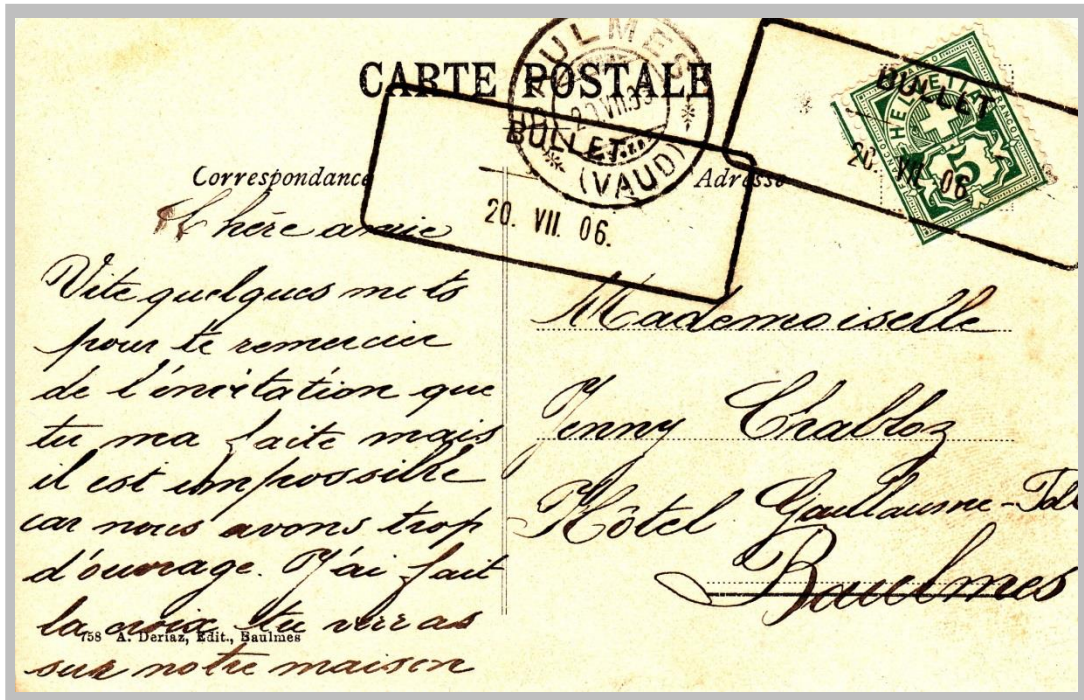 CARTE POSTALE
BAULMES
(VAUD)
BULLET
20. VII. 06.
BULLET
20. VII. 06
HELVETIA
FRANCO
FRANCO
5
Correspondance
Adresse
Chère amie
Vite quelques mots
pour te remercier
de l'invitation que
tu ma faite mais
il est impossible
car nous avons trop
d'ouvrage. J'ai fait
la croix tu verras
sur notre maison
758 A. Deriaz, Edit., Baulmes
Mademoiselle
Jenny Chabloz
Hôtel
Baulmes